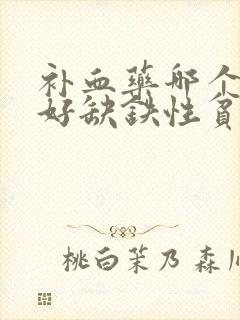 补血藥哪个
好缺鉄性貧
桃白茉乃 森川